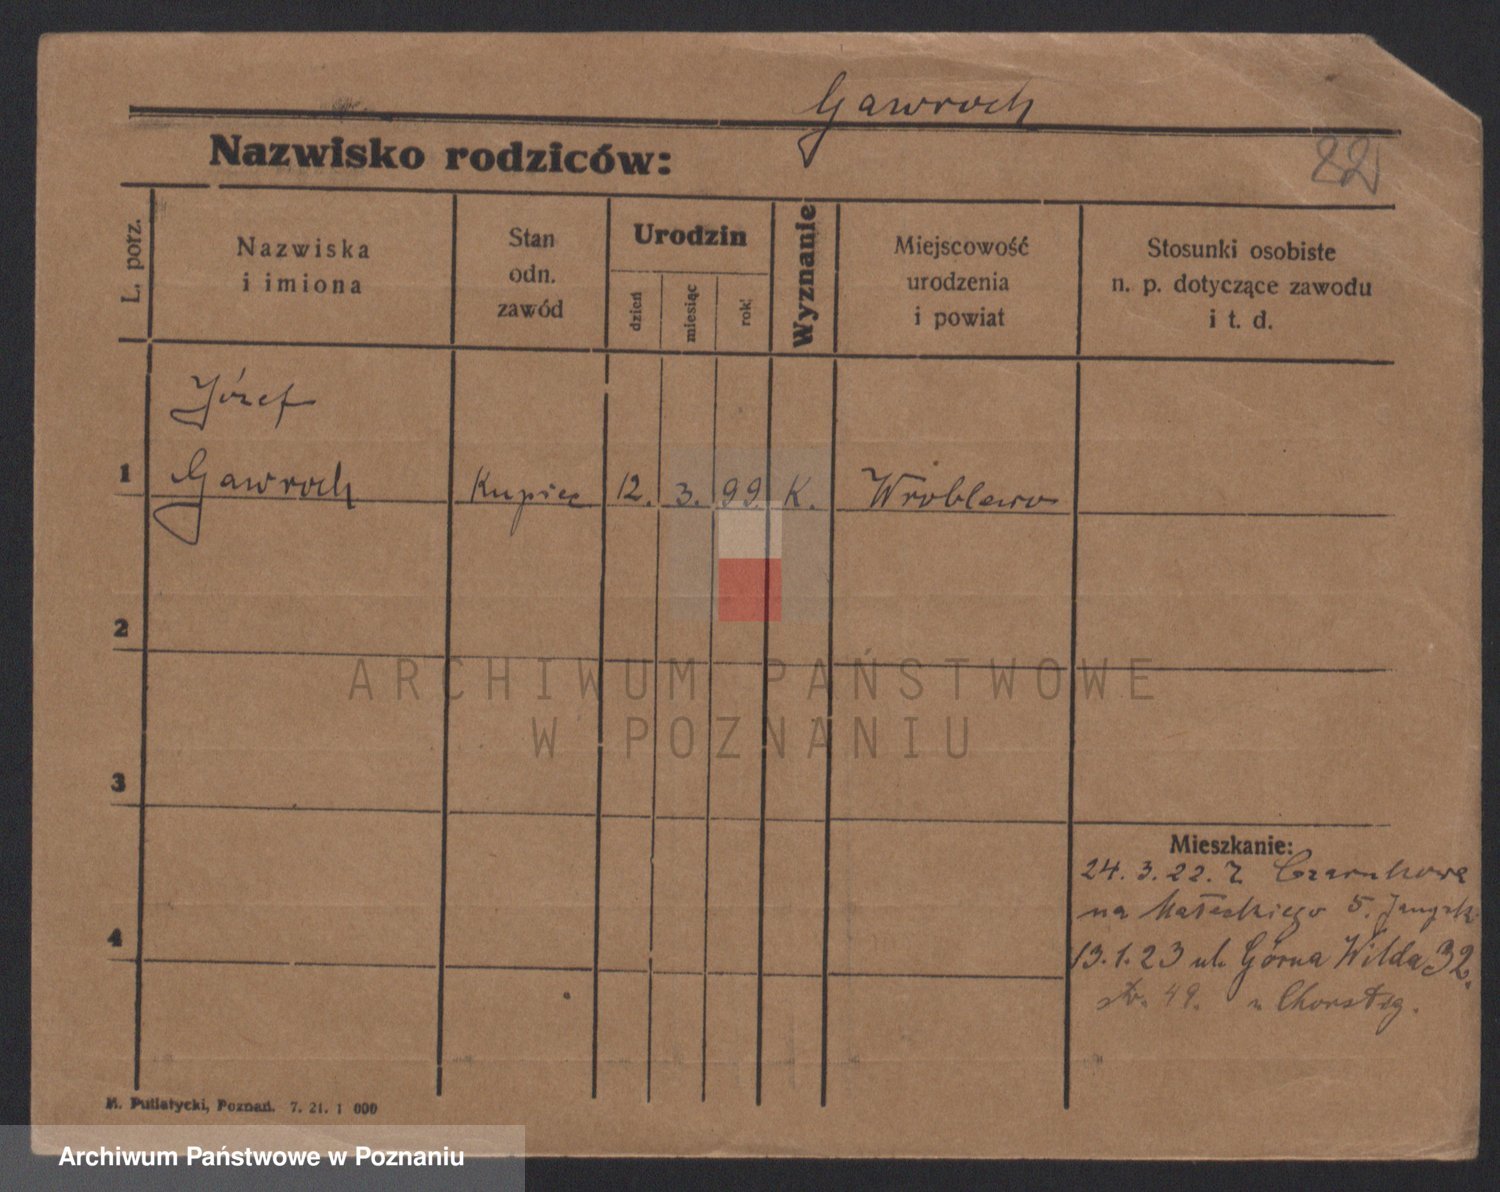 Gawroch
Nazwisko rodziców:
22
L. porz.
Nazwiska
i imiona
Stan
odn.
zawód
Urodzin
dzień
miesiąc
rok
Wyznanie
Miejscowość
urodzenia
i powiat
Stosunki osobiste
n. p. dotyczące zawodu
i t. d.
Józef
1 Gawroch Kupiec 12. 3. 99. K. Wroblewo
2
ARCHIWUM PAŃSTWOWE
W POZNANIU
3
Mieszkanie:
24. 3. 22. z Czarnkowa
na Małeckiego 5.
4
13. 1. 23 ul. Górna Wilda 32.
49.
Putiatycki, Poznań. 7. 21. 1 000
Archiwum Państwowe w Poznaniu